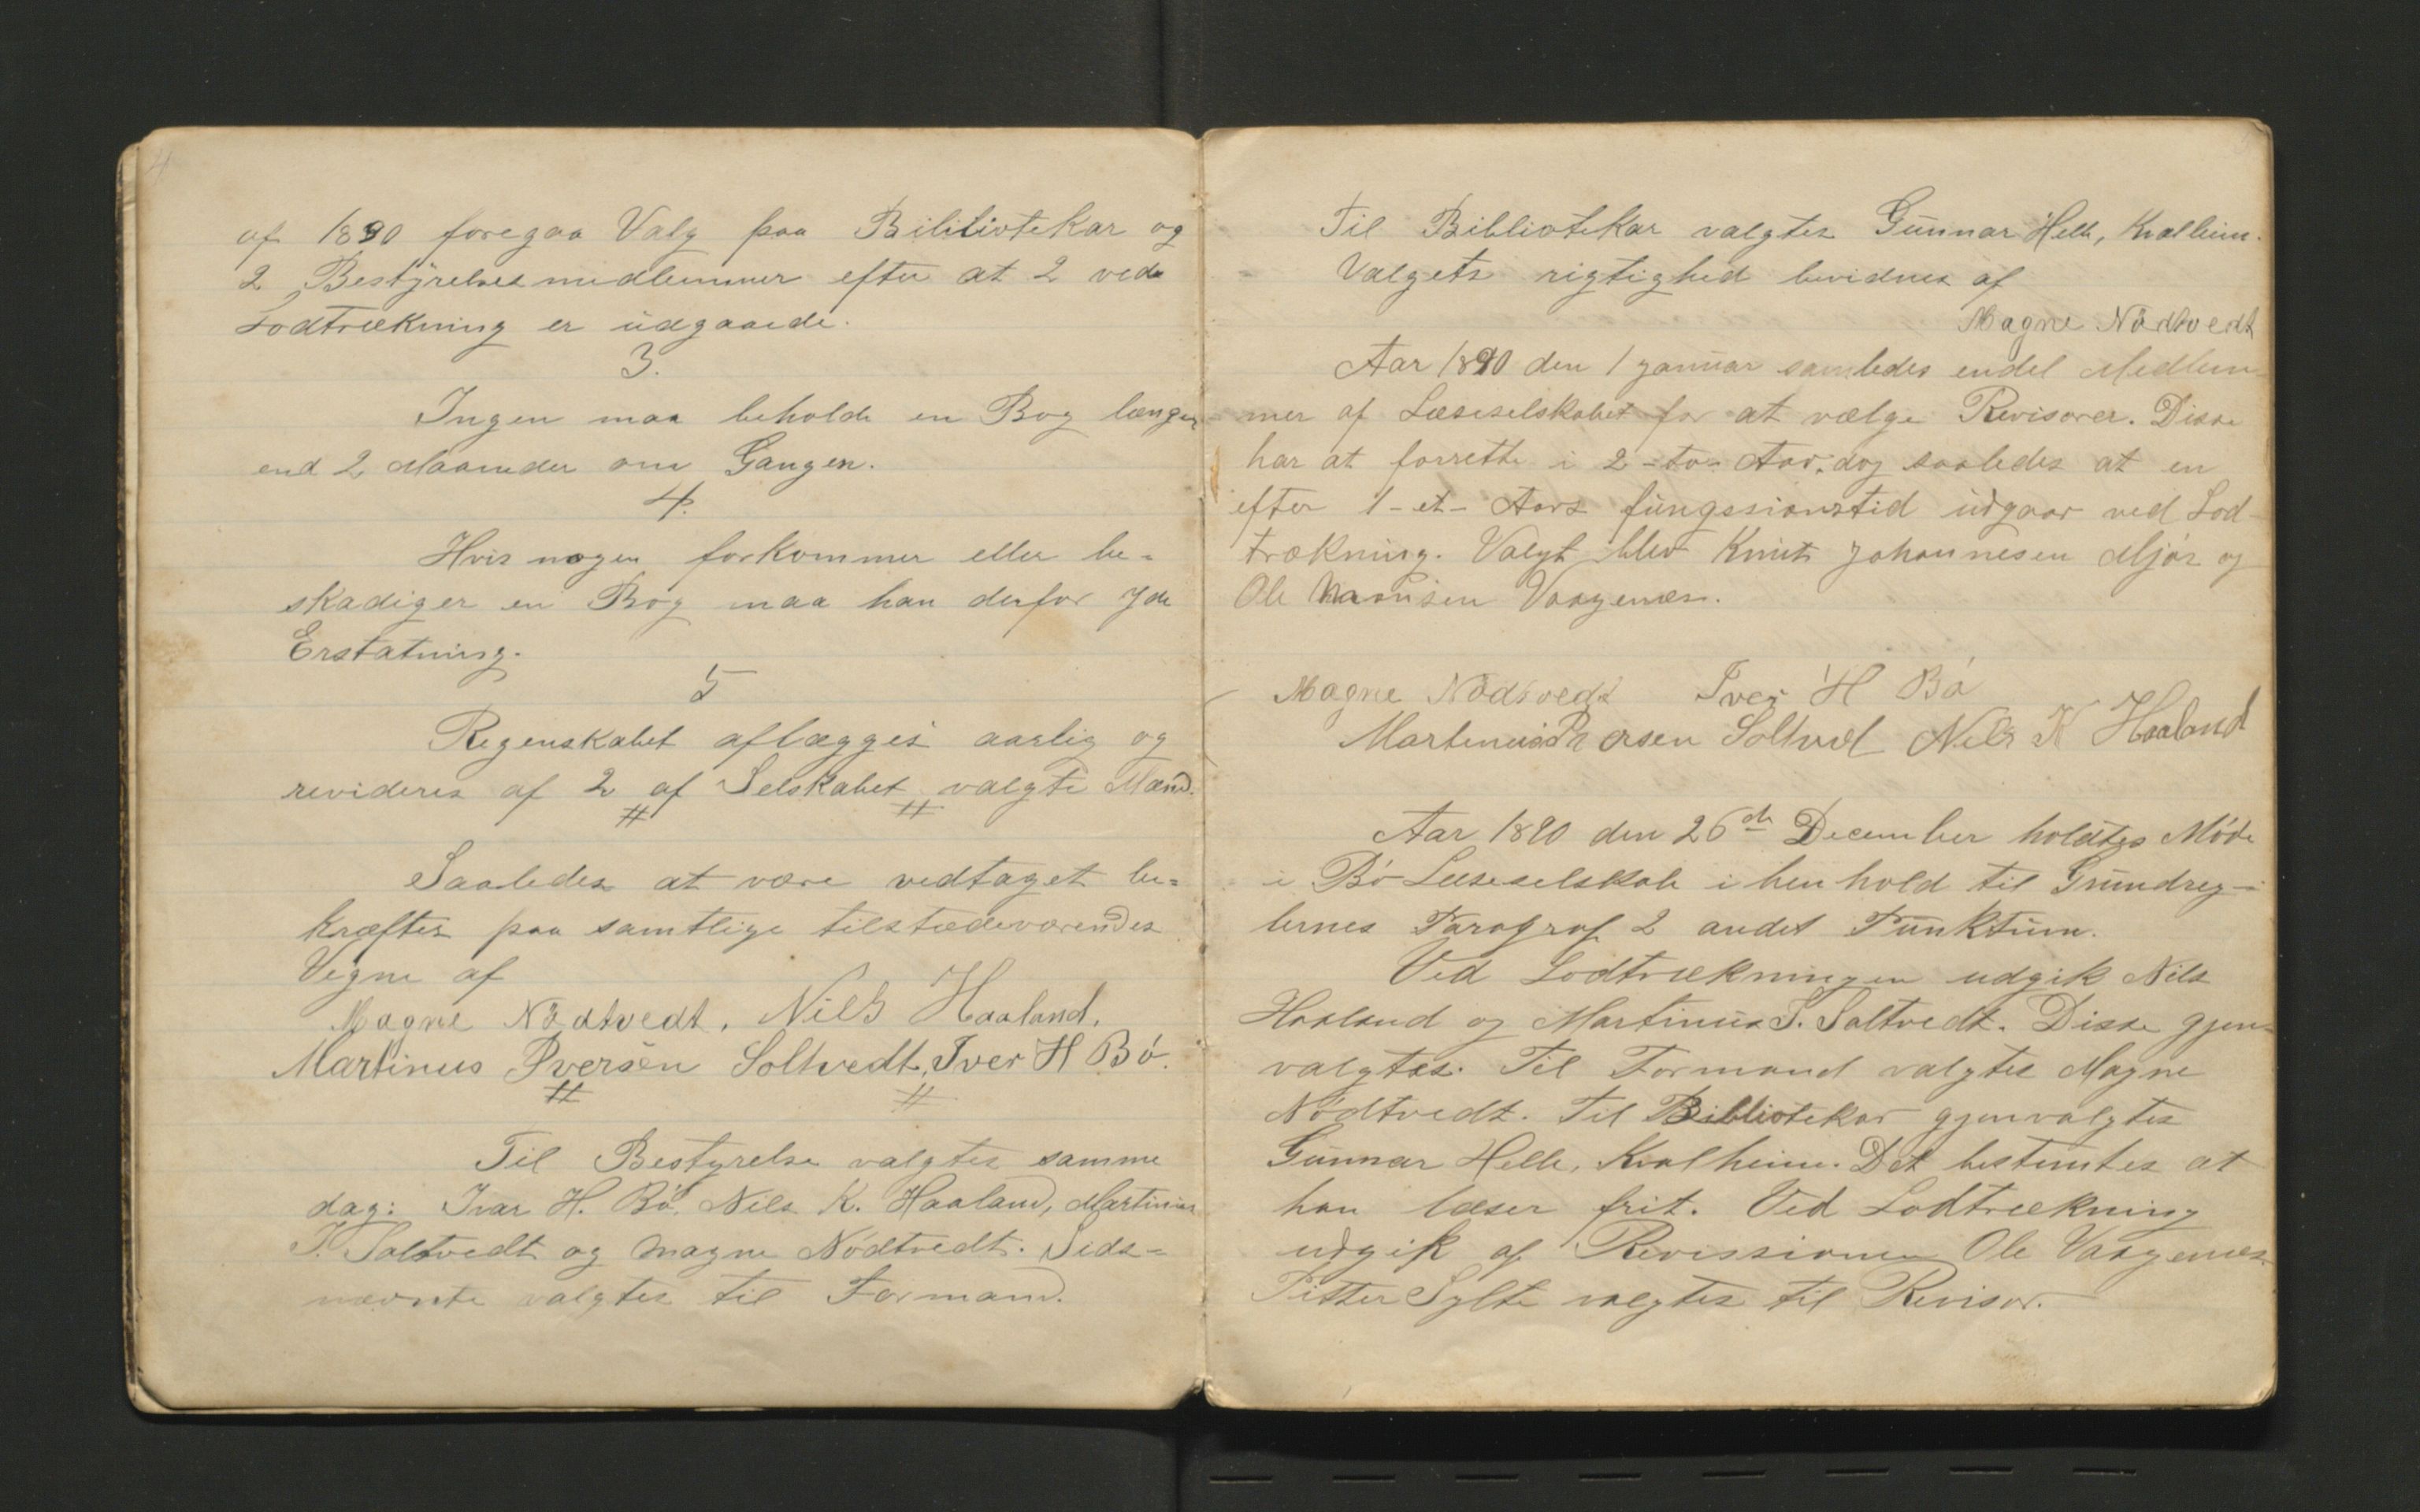 4
af 1890 foregaa Valg paa Bibliotekar og
2 Bestyrelsesmedlemmer efter at 2 ved
Lodtrækning er udgaaede.
3.
Ingen maa beholde en Bog længer
end 2 Maaneder om Gangen.
4.
Hvis nogen forkommer eller be=
skadiger en Bog maa han derfor yde
Erstatning.
5
Regenskabet aflægges aarlig og
revideres af 2 af Selskabet valgte Mænd.
Saaledes at være vedtaget be=
kræftes paa samtlige tilstedeværendes
Vegne af
Magne Nödtvedt. Nils Haaland.
Martinus Iversen Soltvedt, Iver H Bö.
Til Bestyrelse valgtes samme
dag: Ivar H. Bö, Nils K. Haaland, Martinus
I. Saltvedt og Magne Nödtvedt. Sids=
nævnte valgtes til Formand.
Til Bibliotekar valgtes Gunnar Helle, Kvalheim.
Valgets rigtighed bevidnes af
Magne Nödtvedt
Aar 1890 den 1 januar samledes endel Medlem
mer af Læseselskabet for at vælge Revisorer. Disse
har at forrette i 2-to- Aar, dog saaledes at en
efter 1-et- Aars fungssionstid udgaar ved Lod-
trækning. Valgt blev Knut Johannesen Mjös og
Ole Monsen Vaagenes.
Magne Nödtvedt Iver H Bö
Martinus Iversen Soltved Nils K Haaland
Aar 1890 den 26de December holdtes Möde
i Bö Læseselskab i henhold til Grundreg-
lernes Paragraf 2 andet Punktum.
Ved Lodtrækningen udgik Nils
Haaland og Martinus I. Saltvedt. Disse gjen=
valgtes. Til Formand valgtes Magne
Nödtvedt. Til Bibliotekar gjenvalgtes
Gunnar Helle, Kvalheim. Det bestemtes at
han læser frit. Ved Lodtrækning
udgik af Revissionen Ole Vaagenes.
Petter Sylte valgtes til Revisor.